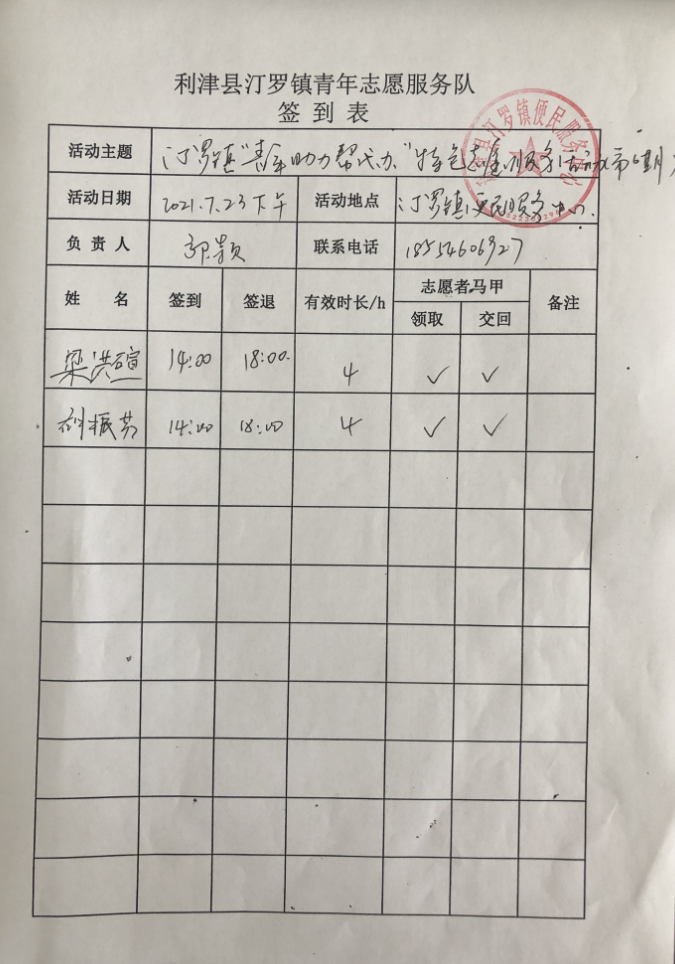 利津县汀罗镇青年志愿服务队
签到表
活动主题 汀罗镇"青年助力帮代办"特色志愿服务活动第 期
活动日期 2021.7.23下午 活动地点 汀罗镇便民服务中心.
负责人 郭颖 联系电话 18554606927
姓名 签到 签退 有效时长/h 志愿者马甲 备注
领取 交回
梁洪瑄 14:00 18:00. 4 ✓ ✓
刘振芳 14:00 18:00 4 ✓ ✓
汀罗镇便民服务中心